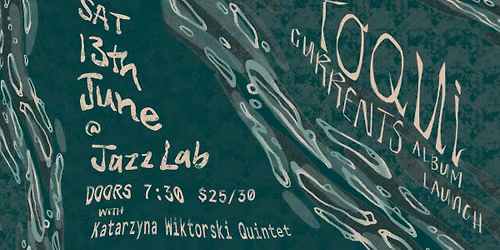 SAT
13th
June
@
Jazz Lab
DOORS 7:30 $25/30
WITH
Katarzyna Wiktorski Quintet
TOQUI
CURRENTS
ALBUM
LAUNCH